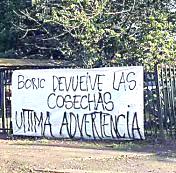 BORIC DEVUELVE LAS
COSECHAS
ULTIMA ADVERTENCIA